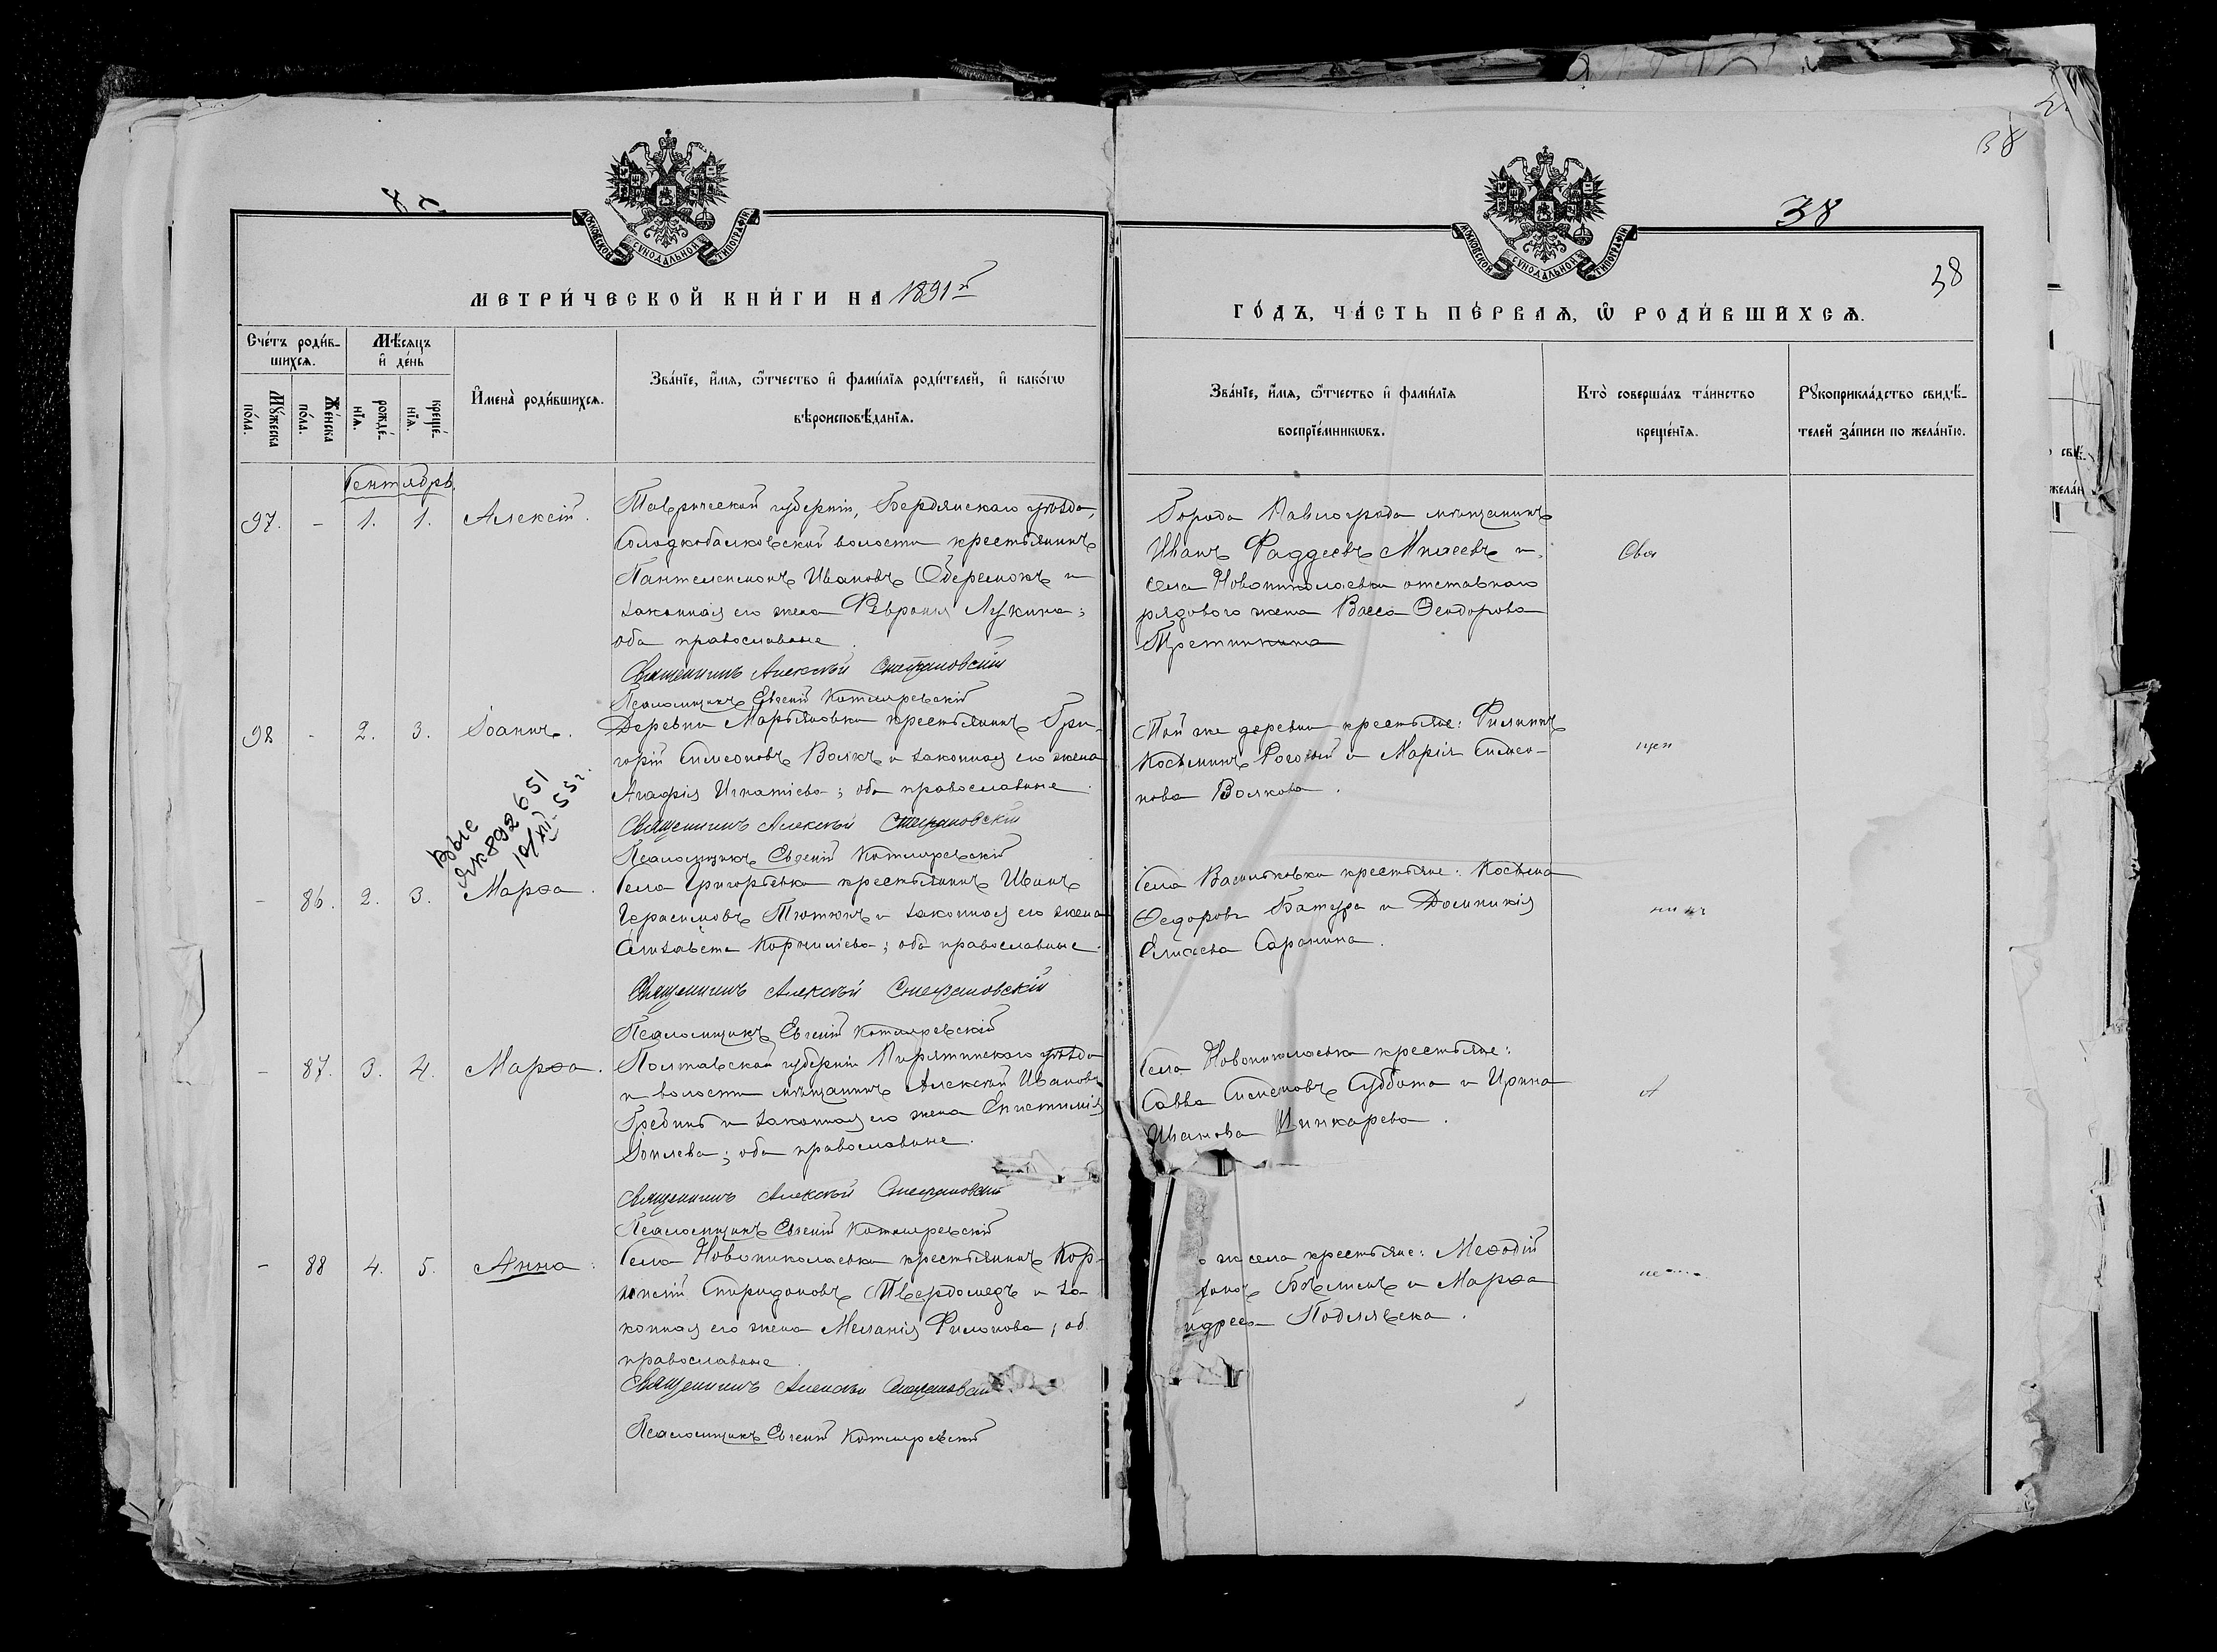 38
38
МОСКОВСКОЙ СѴНОДАЛЬНОЙ ТИПОГРАФІИ
МОСКОВСКОЙ СѴНОДАЛЬНОЙ ТИПОГРАФІИ
38
МЕТРИ́ЧЕСКОЙ КНИ́ГИ НА 1891й
ГО́ДЪ, ЧА́СТЬ ПЕ́РВАѦ, Ѡ҆ РОДИ́ВШИХСѦ.
Сче́тъ роди́в-
шихсѧ.
Мꙋ́жеска по́ла.
Же́нска по́ла.
Мѣ́сѧцъ
и҆ де́нь
рожде́-
нїѧ.
креще́-
нїѧ.
И҆мена̀ роди́вшихсѧ.
Зва́нїе, и҆́мѧ, ѻ҆́тчество и҆ фами́лїѧ роди́телей, и҆ како́гѡ
вѣроисповѣ́данїѧ.
Зва́нїе, и҆́мѧ, ѻ҆́тчество и҆ фами́лїѧ
воспрїе́мникѡвъ.
Кто̀ соверша́лъ та́инство
креще́нїѧ.
Рꙋкоприкла́дство свидѣ́-
телей за́писи по жела́нїю.
Сентябрь.
97. - 1. 1. Алексій.
Таврической губерніи, Бердянскаго уѣзда,
Солодкобалковской волости крестьянинъ
Пантелеимонъ Ивановъ Оберемокъ и
законная его жена Феврония Лукина;
оба православные.
Священникъ Алексѣй Стефановскій
Псаломщикъ Евгеній Котляревскій
Города Павлограда мѣщанинъ
Иванъ Фаддеевъ Михеевъ и
села Новониколаевки отставнаго
рядового жена Васса Ѳеодорова
Третинкина
Свя
98 - 2. 3. Іоаннъ.
Деревни Марьяновки крестьянинъ Гри-
горій Симеоновъ Волкъ и законная его жена
Агафія Игнатіева; оба православные.
Священникъ Алексѣй Стефановскій
Псаломщикъ Евгеній Котляревскій
Той же деревни крестьяне: Филиппъ
Косьминъ Роговый и Марія Симео-
нова Волкова.
щен
ЯК892651
- 86. 2. 3. Марѳа.
Села Григорьевки крестьянинъ Иванъ
Герасимовъ Тютюнъ и законная его жена
Елизавета Корнилиева; оба православные.
Священникъ Алексѣй Стефановскій
Псаломщикъ Евгеній Котляревскій
Села Васильковки крестьяне: Косьма
Ѳедоровъ Батура и Домникія
Елисеева Саранина.
никъ
- 87. 3. 4. Марѳа.
Полтавской губерніи Пирятинскаго уѣзда
и волости мѣщанинъ Алексѣй Ивановъ
Гребинь и законная его жена Епистимія
Іовлева; оба православные.
Священникъ Алексѣй Стефановскій
Псаломщикъ Евгеній Котляревскій
Села Новониколаевки крестьяне:
Савва Симеоновъ Суббота и Ирина
Иванова Шинкарева.
А
- 88 4. 5. Анна.
Села Новониколаевки крестьянинъ Кор-
нилій Спиридоновъ Твердомедъ и за-
конная его жена Меланія Филонова; об
православные.
Священникъ Алексѣй Стефановскій
Псаломщикъ Евгеній Котляревскій
же села крестьяне: Меѳодій
Бѣликъ и Марѳа
Подлявска.